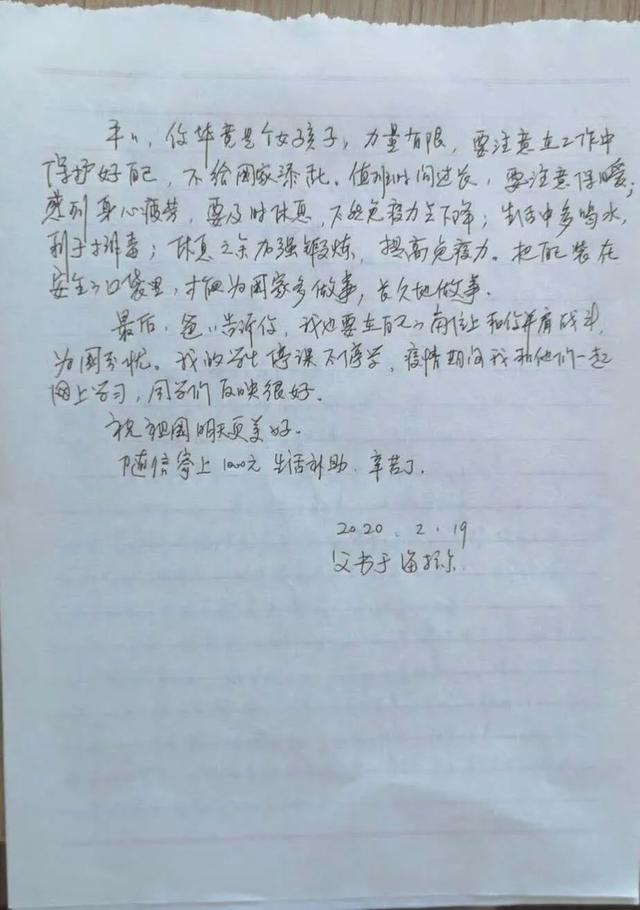 平平,你毕竟是个女孩子,力量有限,要注意在工作中
保护好自己,不给国家添乱。值班时间过长,要注意保暖;
感到身心疲劳,要及时休息,不然免疫力会下降;生活中多喝水,
利于排毒;休息之余加强锻炼,提高免疫力。把自己装在
安全的口袋里,才能为国家多做事,长久地做事。
最后,爸爸告诉你,我也要在自己的岗位上和你并肩战斗,
为国分忧。我的学生停课不停学,疫情期间我和他们一起
网上学习,同学们反映很好。
祝祖国明天更美好。
随信寄上1000元生活补助.辛苦了.
2020.2.19
父书于海拉尔